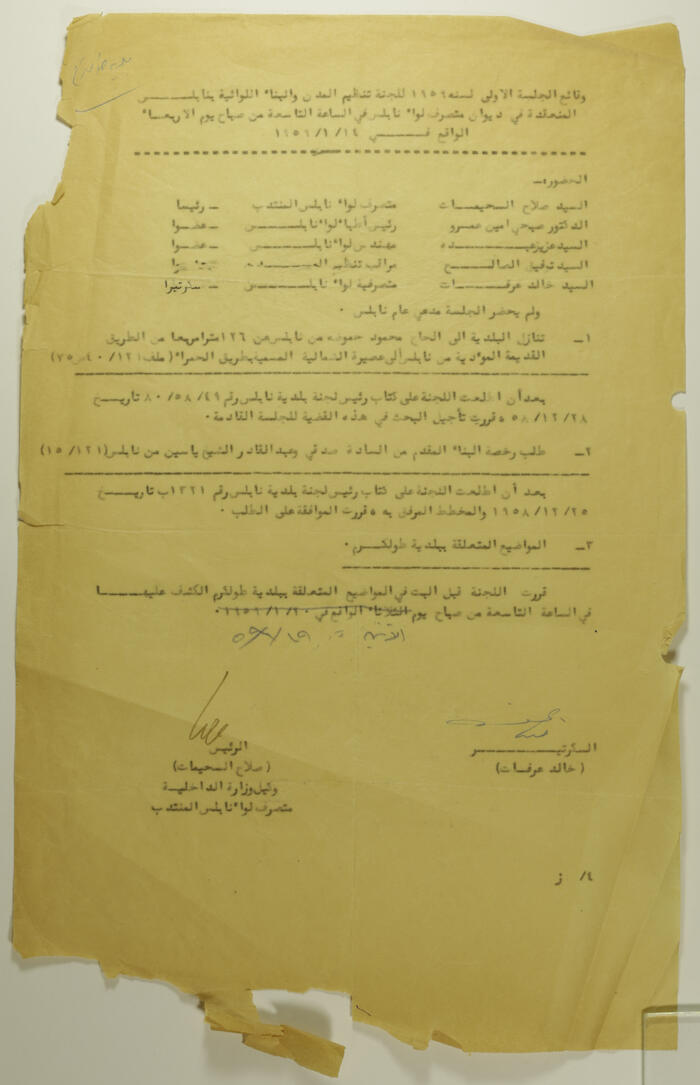 وقائع الجلسة الاولى لسنة ١٩٥٩ للجنة تنظيم المدن والبناء اللوائية بنابلس
المنعقدة في ديوان متصرف لواء نابلس في الساعة التاسعة من صباح يوم الاربعاء
الواقع في ١٩٥٩/١/١٤
الحضور:ـ
السيد صلاح السحيمات متصرف لواء نابلس المنتدب ـ رئيسا
الدكتور صبحي امين عمرو رئيس أطباء لواء نابلس ـ عضوا
السيد عزيز عبده مهندس لواء نابلس ـ عضوا
السيد توفيق الصالح مراقب تنظيم
السيد خالد عرفات متصرفية لواء نابلس ـ سكرتيرا
ولم يحضر الجلسة مدعي عام نابلس ٠
١ـ تنازل البلدية الى الحاج محمود حموضه من نابلس عن ١٢٦ مترا مربعا من الطريق
القديمة المؤدية من نابلس الى عصيرة الشمالية المسمية بطريق الحمراء (ملف ٤٠/١٢١ ص ٧٥)
بعد أن اطلعت اللجنة على كتاب رئيس لجنة بلدية نابلس رقم ٨٠/٥٨/٤٩ تاريخ
٥٨/١٢/٢٨ ، قررت تأجيل البحث في هذه القضية للجلسة القادمة ٠
٢ـ طلب رخصة البناء المقدم من السادة صدقي وعبد القادر الشيخ ياسين من نابلس (١٥/١٢١)
بعد أن اطلعت اللجنة على كتاب رئيس لجنة بلدية نابلس رقم ١٣٢١ب تاريخ
١٩٥٨/١٢/٢٥ والمخطط المرفق به ، قررت الموافقة على الطلب ٠
٣ـ المواضيع المتعلقة ببلدية طولكرم ٠
قررت اللجنة قبل البت في المواضيع المتعلقة ببلدية طولكرم الكشف عليها
في الساعة التاسعة من صباح يوم الثلاثاء الواقع في ١٩٥٩/١/٢٠ ٠
الاثنين
السكرتير
(خالد عرفات)
الرئيس
(صلاح السحيمات)
وكيل وزارة الداخلية
متصرف لواء نابلس المنتدب
٤/ ز